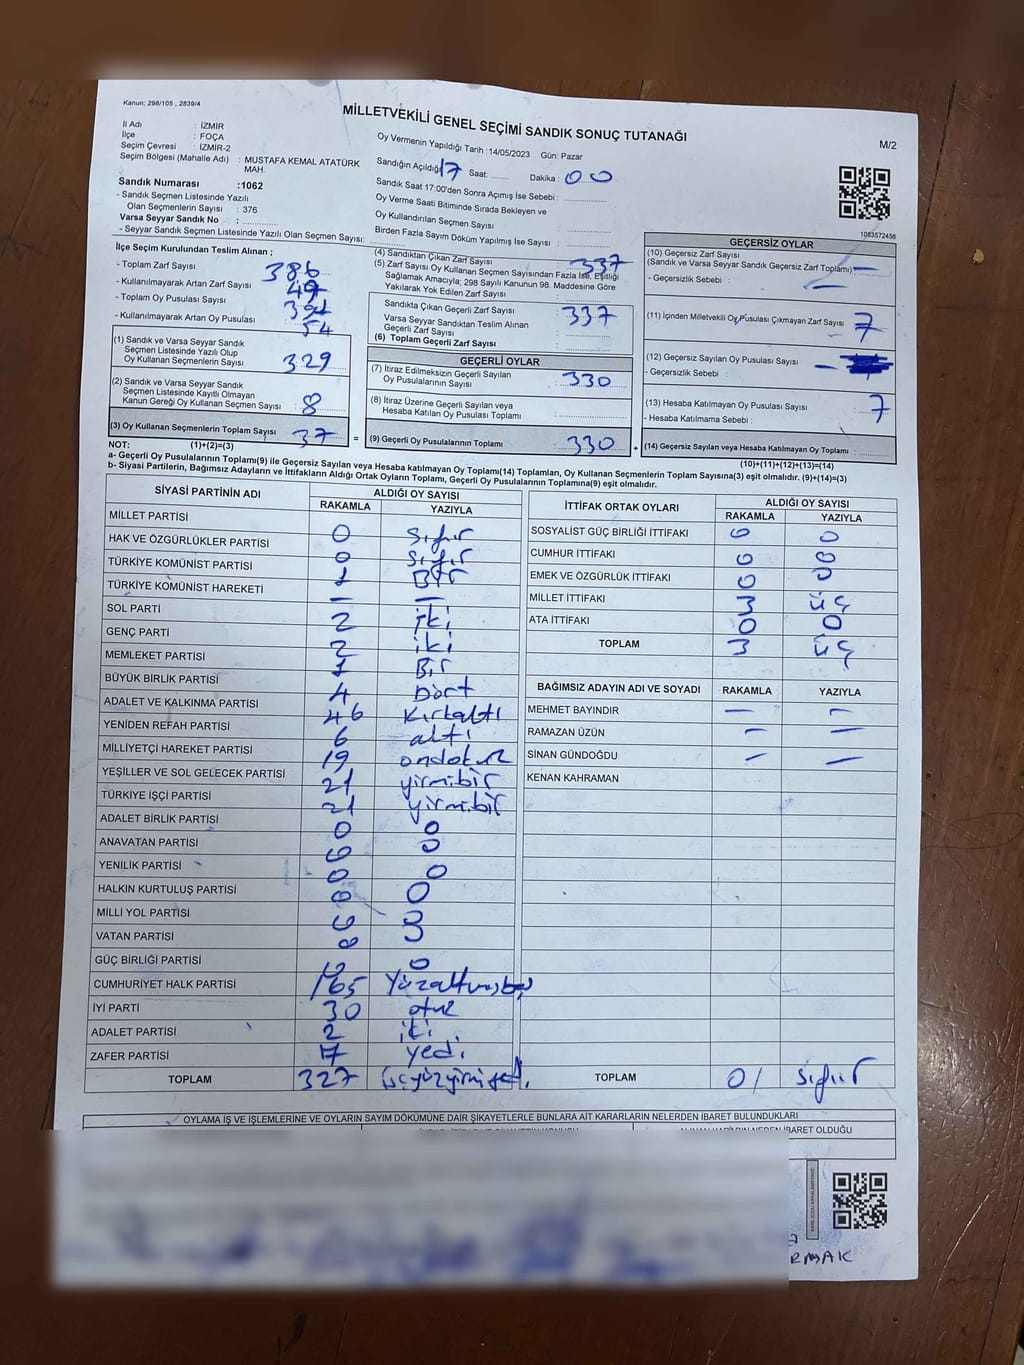 Kanun; 298/105 , 2839/4
MİLLETVEKİLİ GENEL SEÇİMİ SANDIK SONUÇ TUTANAĞI
M/2
İl Adı : İZMİR
İlçe : FOÇA
Seçim Çevresi : İZMİR-2
Seçim Bölgesi (Mahalle Adı) : MUSTAFA KEMAL ATATÜRK MAH.
Sandık Numarası :1062
- Sandık Seçmen Listesinde Yazılı
Olan Seçmenlerin Sayısı : 376
Varsa Seyyar Sandık No :
- Seyyar Sandık Seçmen Listesinde Yazılı Olan Seçmen Sayısı:
Oy Vermenin Yapıldığı Tarih :14/05/2023 Gün: Pazar
Sandığın Açıldığı 17 Saat: Dakika : 00
Sandık Saat 17:00'den Sonra Açılmış İse Sebebi :
Oy Verme Saati Bitiminde Sırada Bekleyen ve
Oy Kullandırılan Seçmen Sayısı :
Birden Fazla Sayım Döküm Yapılmış İse Sayısı :
1083572456
İlçe Seçim Kurulundan Teslim Alınan ;
- Toplam Zarf Sayısı : 386
- Kullanılmayarak Artan Zarf Sayısı : 49
- Toplam Oy Pusulası Sayısı :
- Kullanılmayarak Artan Oy Pusulası : 54
(1) Sandık ve Varsa Seyyar Sandık
Seçmen Listesinde Yazılı Olup
Oy Kullanan Seçmenlerin Sayısı : 329
(2) Sandık ve Varsa Seyyar Sandık
Seçmen Listesinde Kayıtlı Olmayan
Kanun Gereği Oy Kullanan Seçmen Sayısı : 8
(3) Oy Kullanan Seçmenlerin Toplam Sayısı : 37
(4) Sandıktan Çıkan Zarf Sayısı : 337
(5) Zarf Sayısı Oy Kullanan Seçmen Sayısından Fazla İse, Eşitliği
Sağlamak Amacıyla; 298 Sayılı Kanunun 98. Maddesine Göre
Yakılarak Yok Edilen Zarf Sayısı :
Sandıkta Çıkan Geçerli Zarf Sayısı : 337
Varsa Seyyar Sandıktan Teslim Alınan
Geçerli Zarf Sayısı :
(6) Toplam Geçerli Zarf Sayısı :
GEÇERLİ OYLAR
(7) İtiraz Edilmeksizin Geçerli Sayılan
Oy Pusulalarının Sayısı : 330
(8) İtiraz Üzerine Geçerli Sayılan veya
Hesaba Katılan Oy Pusulası Toplamı :
= (9) Geçerli Oy Pusulalarının Toplamı : 330
GEÇERSİZ OYLAR
(10) Geçersiz Zarf Sayısı
(Sandık ve Varsa Seyyar Sandık Geçersiz Zarf Toplamı) : —
- Geçersizlik Sebebi : —
(11) İçinden Milletvekili Oy Pusulası Çıkmayan Zarf Sayısı : 7
(12) Geçersiz Sayılan Oy Pusulası Sayısı : —
- Geçersizlik Sebebi :
(13) Hesaba Katılmayan Oy Pusulası Sayısı : 7
- Hesaba Katılmama Sebebi :
+ (14) Geçersiz Sayılan veya Hesaba Katılmayan Oy Toplamı :
NOT: (1)+(2)=(3)
(10)+(11)+(12)+(13)=(14)
a- Geçerli Oy Pusulalarının Toplamı(9) ile Geçersiz Sayılan veya Hesaba katılmayan Oy Toplamı(14) Toplamları, Oy Kullanan Seçmenlerin Toplam Sayısına(3) eşit olmalıdır. (9)+(14)=(3)
b- Siyasi Partilerin, Bağımsız Adayların ve İttifakların Aldığı Ortak Oyların Toplamı, Geçerli Oy Pusulalarının Toplamına(9) eşit olmalıdır.
SİYASİ PARTİNİN ADI ALDIĞI OY SAYISI
RAKAMLA YAZIYLA
MİLLET PARTİSİ 0 Sıfır
HAK VE ÖZGÜRLÜKLER PARTİSİ 0 Sıfır
TÜRKİYE KOMÜNİST PARTİSİ 1 Bir
TÜRKİYE KOMÜNİST HAREKETİ — —
SOL PARTİ 2 iki
GENÇ PARTİ 2 iki
MEMLEKET PARTİSİ 1 Bir
BÜYÜK BİRLİK PARTİSİ 4 Dört
ADALET VE KALKINMA PARTİSİ 46 Kırkaltı
YENİDEN REFAH PARTİSİ 6 altı
MİLLİYETÇİ HAREKET PARTİSİ 19 ondokuz
YEŞİLLER VE SOL GELECEK PARTİSİ 21 yirmibir
TÜRKİYE İŞÇİ PARTİSİ 21 yirmibir
ADALET BİRLİK PARTİSİ 0 0
ANAVATAN PARTİSİ 0 0
YENİLİK PARTİSİ 0 0
HALKIN KURTULUŞ PARTİSİ 0 0
MİLLİ YOL PARTİSİ 0 0
VATAN PARTİSİ 0 0
GÜÇ BİRLİĞİ PARTİSİ 0 0
CUMHURİYET HALK PARTİSİ 165 Yüzaltmışbeş
İYİ PARTİ 30 otuz
ADALET PARTİSİ 2 iki
ZAFER PARTİSİ 7 yedi
TOPLAM 327 üçyüzyirmiyedi
İTTİFAK ORTAK OYLARI ALDIĞI OY SAYISI
RAKAMLA YAZIYLA
SOSYALİST GÜÇ BİRLİĞİ İTTİFAKI 0 0
CUMHUR İTTİFAKI 0 0
EMEK VE ÖZGÜRLÜK İTTİFAKI 0 0
MİLLET İTTİFAKI 3 üç
ATA İTTİFAKI 0 0
TOPLAM 3 üç
BAĞIMSIZ ADAYIN ADI VE SOYADI RAKAMLA YAZIYLA
MEHMET BAYINDIR — —
RAMAZAN ÜZÜN — —
SİNAN GÜNDOĞDU — —
KENAN KAHRAMAN
TOPLAM 0/ Sıfır
OYLAMA İŞ VE İŞLEMLERİNE VE OYLARIN SAYIM DÖKÜMÜNE DAİR ŞİKAYETLERLE BUNLARA AİT KARARLARIN NELERDEN İBARET BULUNDUKLARI
ALINAN KARARIN NEDEN İBARET OLDUĞU
RMAK